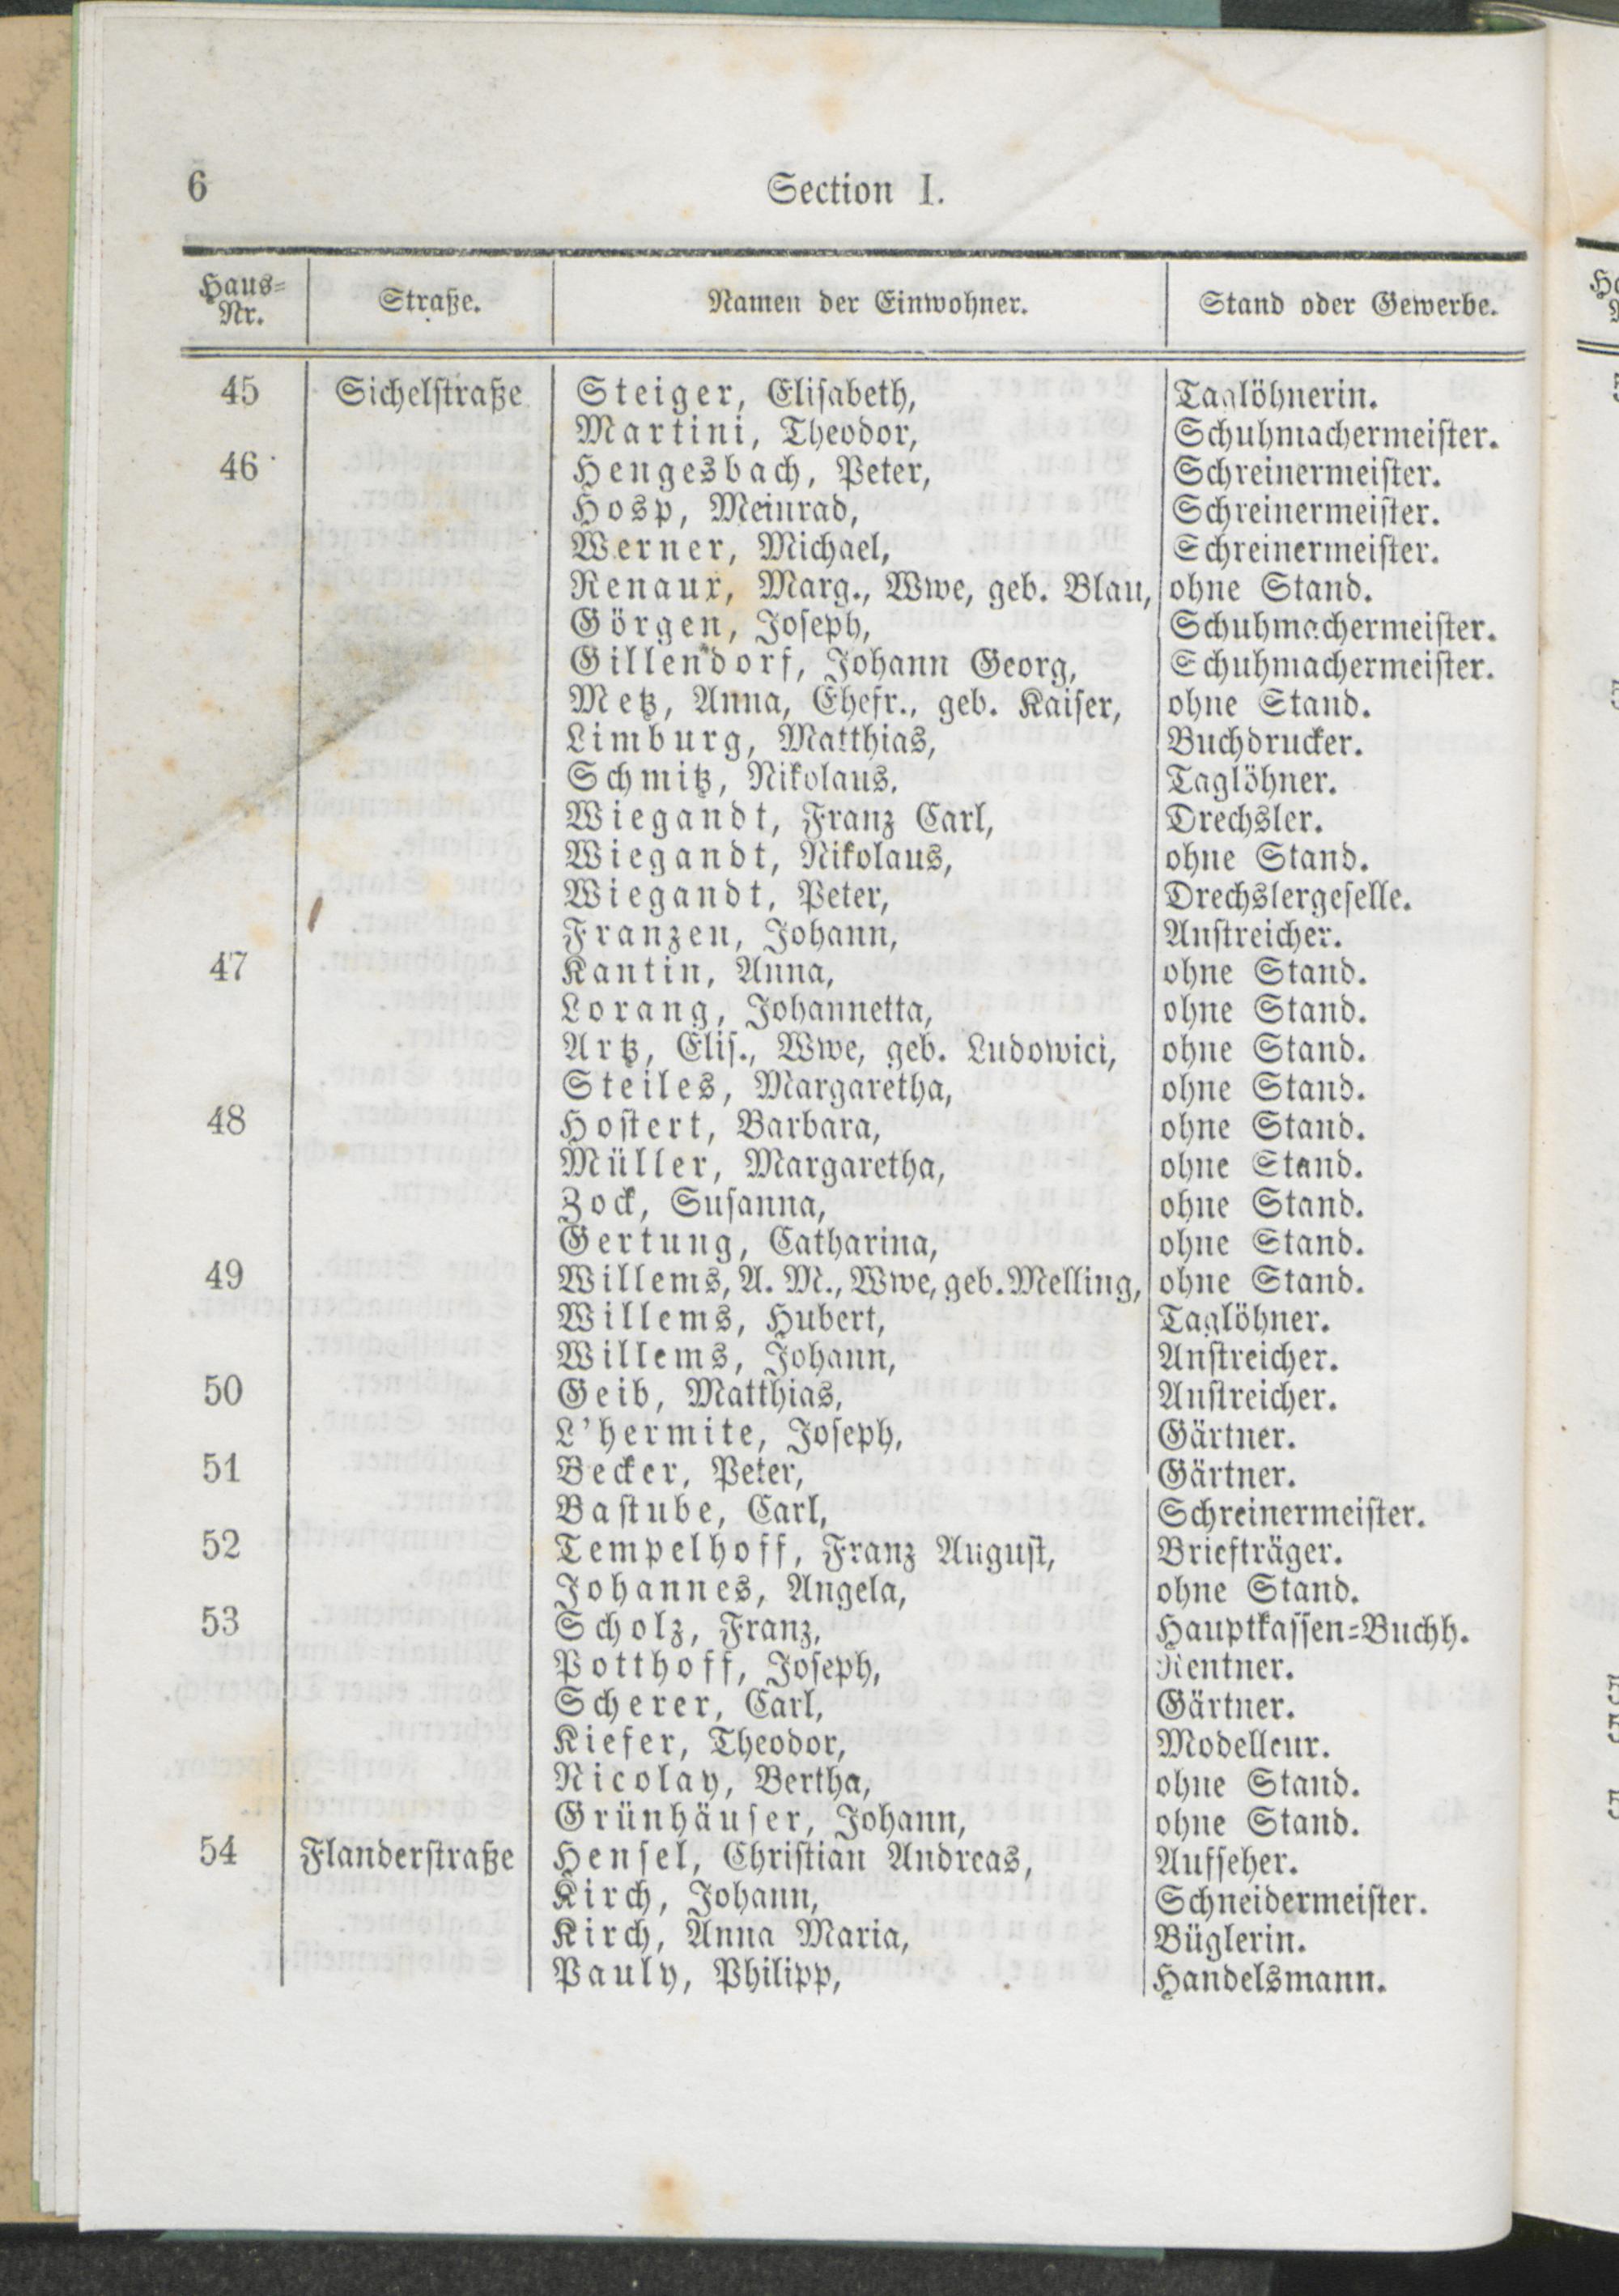 6 Section I.
Haus-Nr. Straße. Namen der Einwohner. Stand oder Gewerbe.
45 Sichelstraße Steiger, Elisabeth, Taglöhnerin.
Martini, Theodor, Schuhmachermeister.
46 Hengesbach, Peter, Schreinermeister.
Hosp, Meinrad, Schreinermeister.
Werner, Michael, Schreinermeister.
Renaux, Marg., Wwe, geb. Blau, ohne Stand.
Görgen, Joseph, Schuhmachermeister.
Gillendorf, Johann Georg, Schuhmachermeister.
Metz, Anna, Ehefr., geb. Kaiser, ohne Stand.
Limburg, Matthias, Buchdrucker.
Schmitz, Nikolaus, Taglöhner.
Wiegandt, Franz Carl, Drechsler.
Wiegandt, Nikolaus, ohne Stand.
Wiegandt, Peter, Drechslergeselle.
Franzen, Johann, Anstreicher.
47 Kantin, Anna, ohne Stand.
Lorang, Johannetta, ohne Stand.
Artz, Elis., Wwe, geb. Ludowici, ohne Stand.
Steiles, Margaretha, ohne Stand.
48 Hostert, Barbara, ohne Stand.
Müller, Margaretha, ohne Stand.
Zock, Susanna, ohne Stand.
Gertung, Catharina, ohne Stand.
49 Willems, A. M., Wwe, geb. Melling, ohne Stand.
Willems, Hubert, Taglöhner.
Willems, Johann, Anstreicher.
50 Geib, Matthias, Anstreicher.
L'hermite, Joseph, Gärtner.
51 Becker, Peter, Gärtner.
Bastube, Carl, Schreinermeister.
52 Tempelhoff, Franz August, Briefträger.
Johannes, Angela, ohne Stand.
53 Scholz, Franz, Hauptkassen-Buchh.
Potthoff, Joseph, Rentner.
Scherer, Carl, Gärtner.
Kiefer, Theodor, Modelleur.
Nicolay, Bertha, ohne Stand.
Grünhäuser, Johann, ohne Stand.
54 Flanderstraße Hensel, Christian Andreas, Aufseher.
Kirch, Johann, Schneidermeister.
Kirch, Anna Maria, Büglerin.
Pauly, Philipp, Handelsmann.